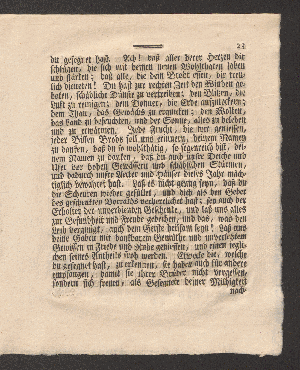 23
du gesegnet hast. Ach! daß aller derer Hertzen dir
schlügen, die sich mit deinen neuen Wohlthaten laben
und stärken; daß alle, die dein Brodt essen, dir treu-
lich dieneten! Du hast zur rechten Zeit den Winden ge-
boten, schädliche Dünste zu vertreiben; den Blitzen, die
Luft zu reinigen; dem Donner, die Erde aufzulockern;
dem Thau, das Gewächs zu erquicken; den Wolken,
das Land zu befeuchten, und der Sonne, alles zu beleben
und zu erwärmen. Jede Frucht, die wir geniessen,
jeder Bissen Brods soll uns erinnern, deinem Namen
zu danken, daß du so wohlthätig, so segenreich bist, dei-
nem Namen zu danken, daß du auch unsre Deiche und
Ufer vor hohen Gewässern und schädlichen Stürmen,
und dadurch unsre Aecker und Häuser dieses Jahr mäch-
tiglich bewahret hast. Laß es nicht genug seyn, daß du
die Scheuren wieder gefüllet, und dich als den Geber
des geschenkten Vorraths verherrlichet hast; sey auch der
Erhalter der unverdienten Geschenke, und laß uns alles
zur Gesundheit und Freude gedeihen, und das, was den
Leib vergnügt, auch dem Geiste heilsam seyn! Laß uns
deine Gaben mit dankbarem Gemüthe und unverletztem
Gewissen in Friede und Ruhe geniessen, und einen jegli-
chen seines Antheils froh werden. Erwecke die, welche
du gesegnet hast, zu erkennen, sie haben auch für andre
empfangen, damit sie ihrer Brüder nicht vergessen,
sondern sich freuen, als Gesegnete deiner Mildigkeit
nach-